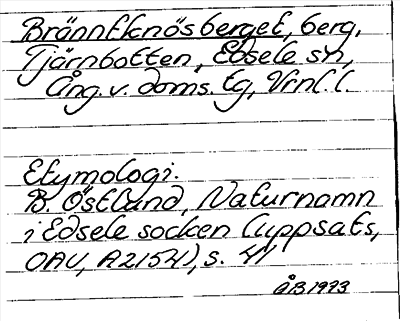 Brännfknösberget, berg,
Tjärnbotten, Edsele sn,
Ång. v. doms. tg, Vrnl. l.
Etymologi.
B. Östlund, Naturnamn
i Edsele socken (uppsats,
OAU, A2154), s. 41
ÅB 1973